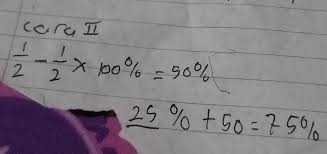 cara II
1/2 - 1/2 × 100% = 50%
25% + 50 = 75%